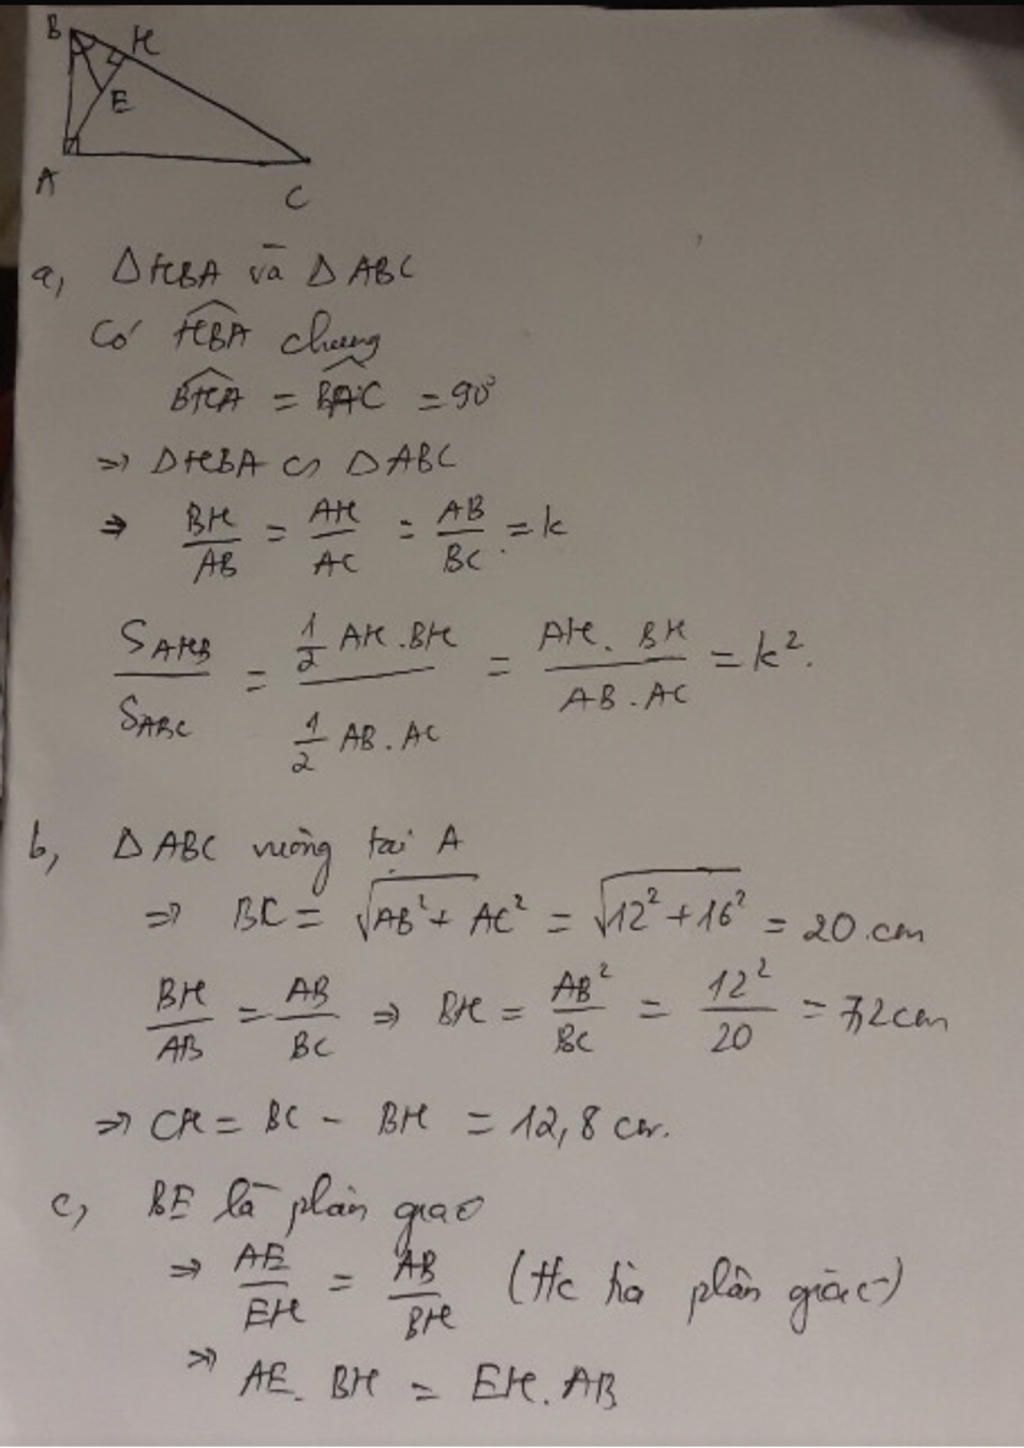 B
H
E
A
C
a, ΔHBA và ΔABC
Có \widehat{HBA} chung
\widehat{BHA} = \widehat{BAC} = 90°
=> ΔHBA ∽ ΔABC
=> \frac{BH}{AB} = \frac{AH}{AC} = \frac{AB}{BC} = k
\frac{S_{AHB}}{S_{ABC}} = \frac{\frac{1}{2} AH.BH}{\frac{1}{2} AB.AC} = \frac{AH.BH}{AB.AC} = k².
b, ΔABC vuông tại A
=> BC = \sqrt{AB² + AC²} = \sqrt{12² + 16²} = 20 cm
\frac{BH}{AB} = \frac{AB}{BC} => BH = \frac{AB²}{BC} = \frac{12²}{20} = 7,2 cm
=> CH = BC - BH = 12,8 cm.
c, BE là phân giác
=> \frac{AE}{EH} = \frac{AB}{BH} (t/c tia phân giác)
=> AE.BH = EH.AB